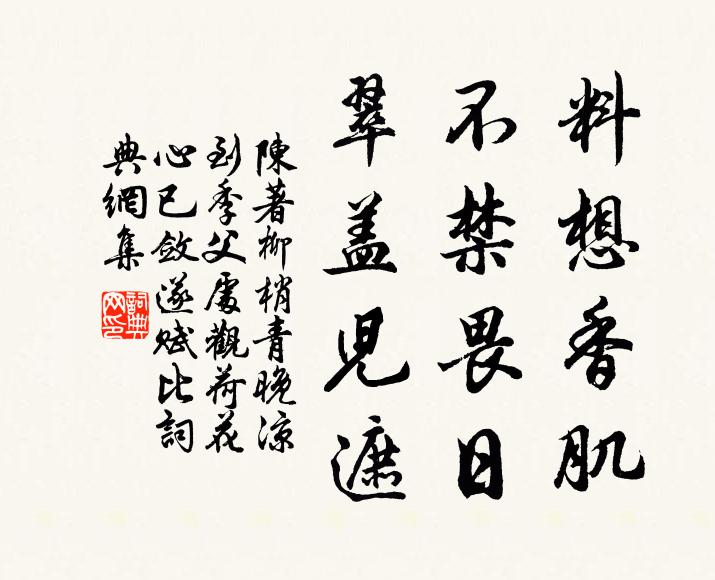 料想香肌
不禁畏日
翠盖児遮
陳著柳梢青晚凉
到季父處觀荷花
心已斂遂赋比詞
典網集
詞典
网印